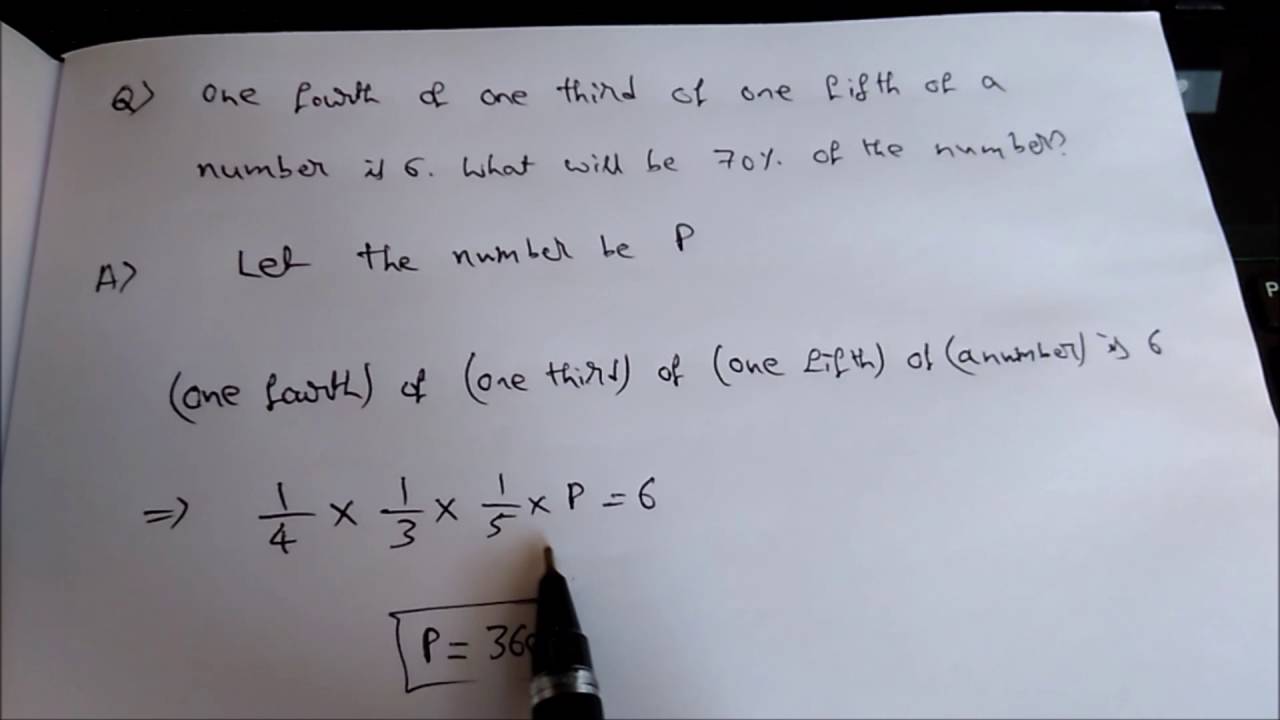 Q) One fourth of one third of one fifth of a
number is 6. What will be 70% of the number?
A) Let the number be P
(one fourth) of (one third) of (one fifth) of (a number) is 6
=> 1/4 × 1/3 × 1/5 × P = 6
P = 36
P